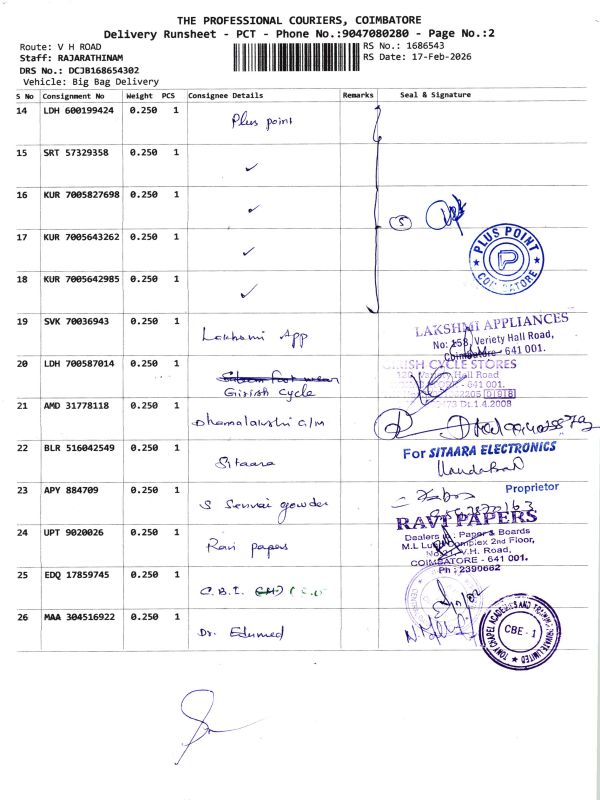 THE PROFESSIONAL COURIERS, COIMBATORE
Delivery Runsheet - PCT - Phone No.:9047080280 - Page No.:2
Route: V H ROAD
RS No.: 1686543
Staff: RAJARATHINAM
RS Date: 17-Feb-2026
DRS No.: DCJB168654302
Vehicle: Big Bag Delivery
S No Consignment No Weight PCS Consignee Details Remarks Seal & Signature
14 LDH 600199424 0.250 1 Plus point
15 SRT 57329358 0.250 1 ✓
16 KUR 7005827698 0.250 1 ✓
5
17 KUR 7005643262 0.250 1 ✓
PLUS POINT
P
COIMBATORE
18 KUR 7005642985 0.250 1 ✓
19 SVK 70036943 0.250 1 Lakshmi App
LAKSHMI APPLIANCES
No: 158, Veriety Hall Road,
Coimbatore - 641 001.
20 LDH 700587014 0.250 1
Girish Cycle
GIRISH CYCLE STORES
Hall Road
- 641 001.
21 AMD 31778118 0.250 1 Dhamalakshi c/m
22 BLR 516042549 0.250 1 Sitaara
For SITAARA ELECTRONICS
Proprietor
23 APY 884709 0.250 1 S Senvai gowder
24 UPT 9020026 0.250 1 Ravi papers
RAVI PAPERS
Dealers in : Paper & Boards
M.L Complex 2nd Floor,
V.H. Road,
COIMBATORE - 641 001.
Ph : 2390662
25 EDQ 17859745 0.250 1 C.B.I.
26 MAA 304516922 0.250 1 Dr. Edumed
TONY CHAPEL ACADEMIES AND TRAINING PRIVATE LIMITED
CBE - 1